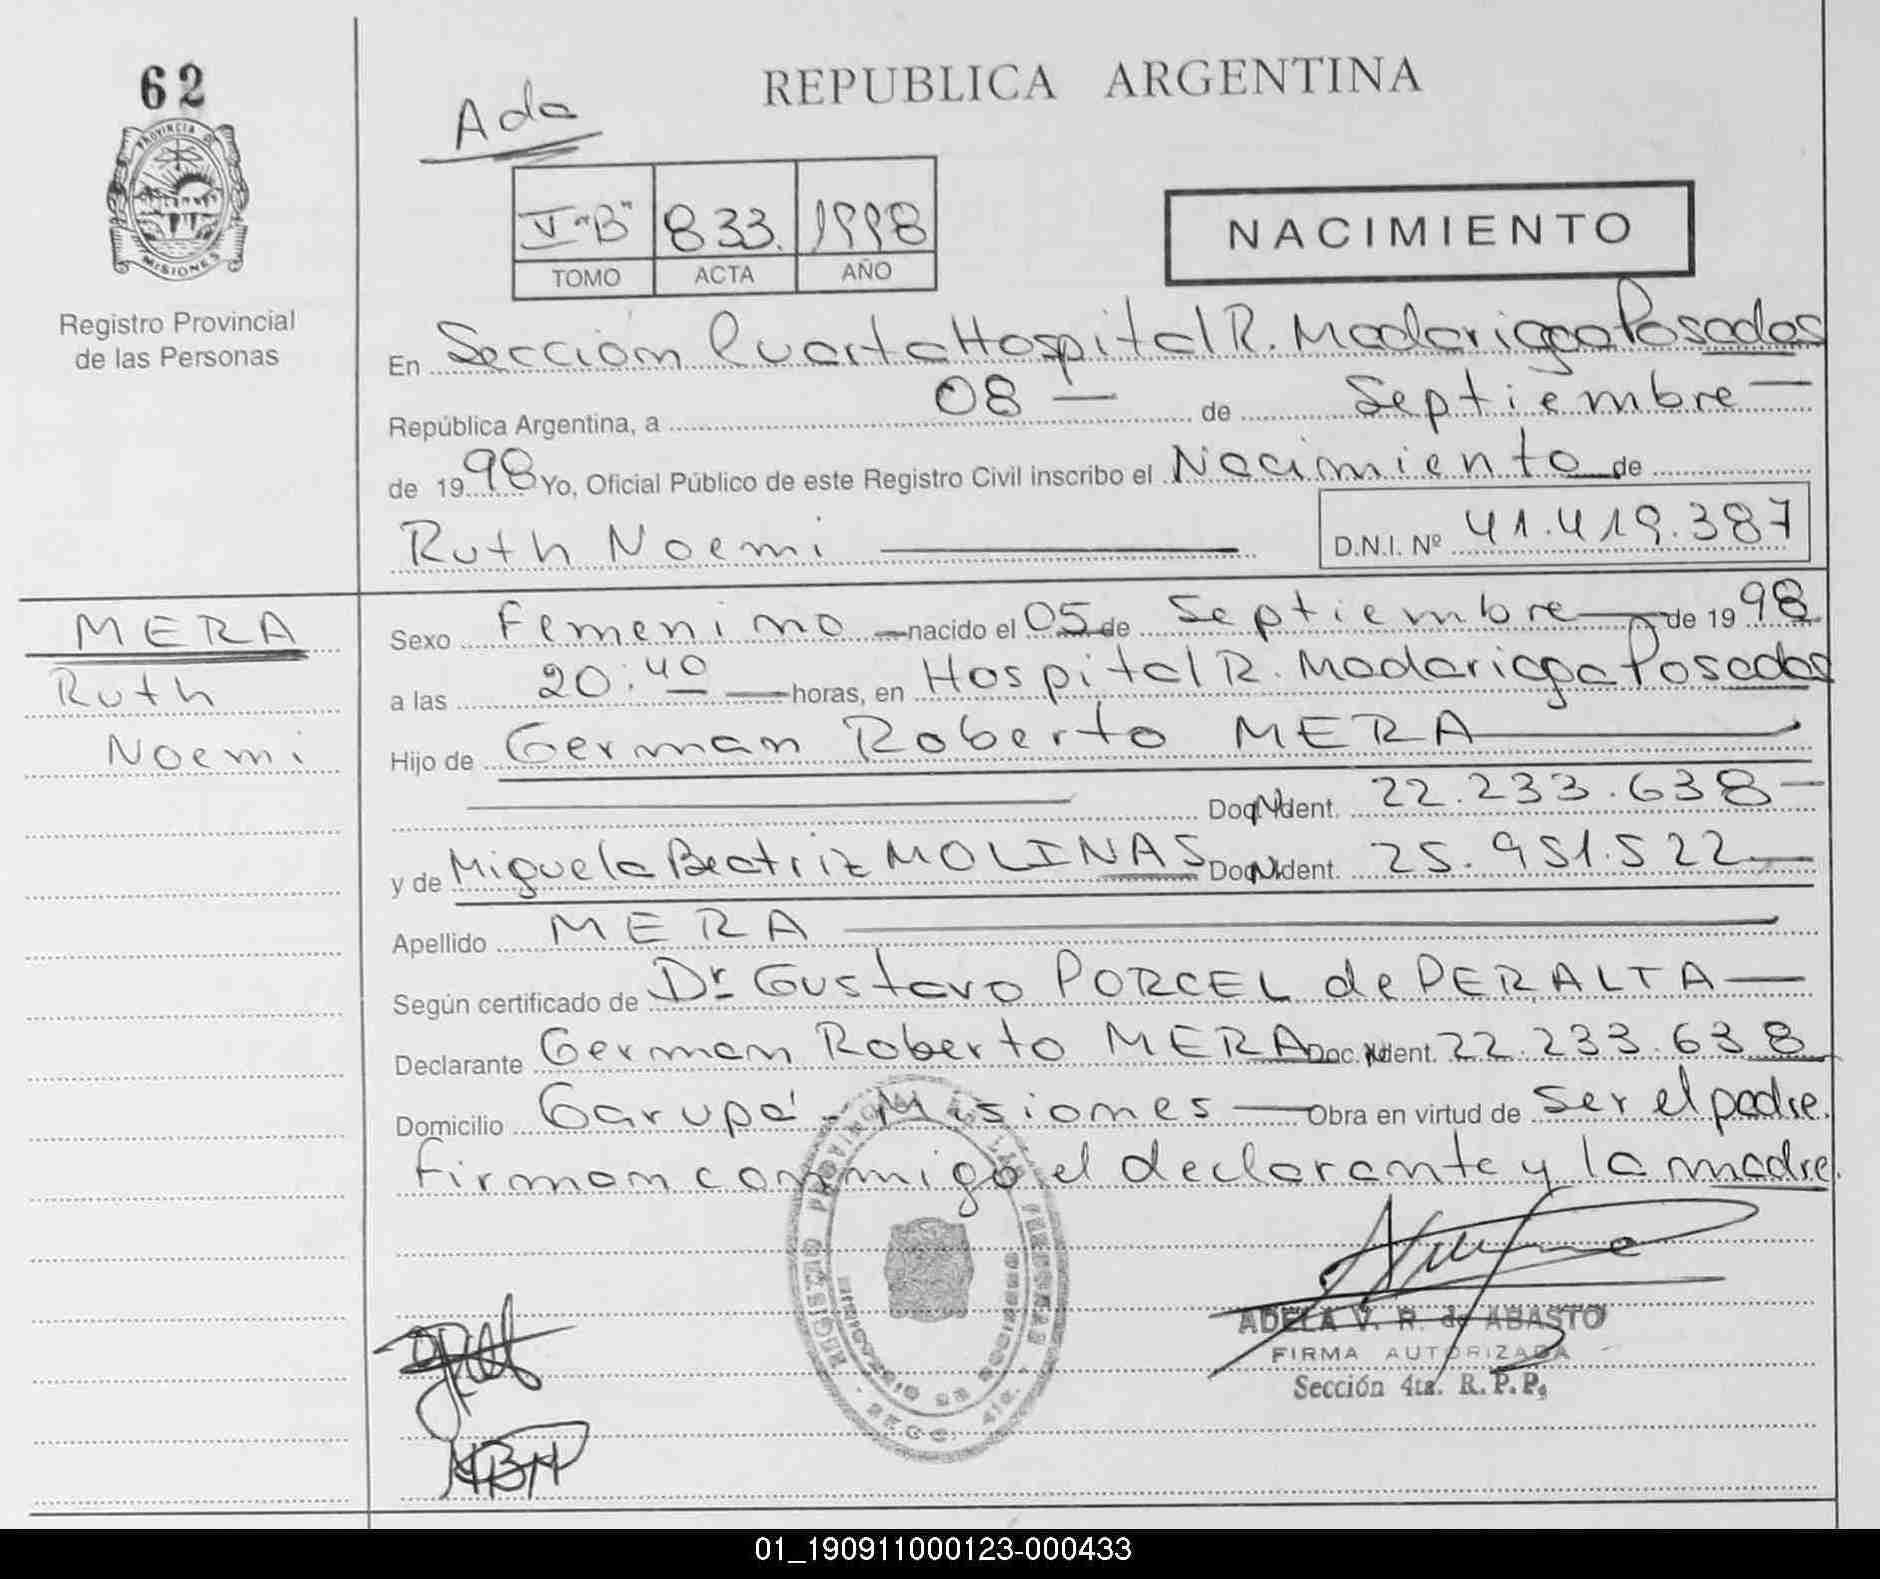 62
PROVINCIA DE
MISIONES
Registro Provincial
de las Personas
REPUBLICA ARGENTINA
Ada
V "B" 833. 1998
TOMO ACTA AÑO
NACIMIENTO
En Sección Cuarta Hospital R. Madariaga Posadas
República Argentina, a 08 — de Septiembre —
de 1998 Yo, Oficial Público de este Registro Civil inscribo el Nacimiento de
Ruth Noemi — D.N.I. Nº 41.419.387
MERA
Ruth
Noemi
Sexo Femenino — nacido el 05 de Septiembre — de 1998
a las 20:40 — horas, en Hospital R. Madariaga Posadas
Hijo de German Roberto MERA —
— Doc. Ident. 22.233.638 —
y de Miguela Beatriz MOLINAS Doc. Ident. 25.951.522 —
Apellido MERA —
Según certificado de Dr. Gustavo PORCEL de PERALTA —
Declarante German Roberto MERA Doc. Ident. 22.233.638
Domicilio Garupá - Misiones — Obra en virtud de ser el padre.
Firman conmigo el declarante y la madre.
ADELA V. R. de ABASTO
FIRMA AUTORIZADA
Sección 4ta. R. P. P.
01_190911000123-000433